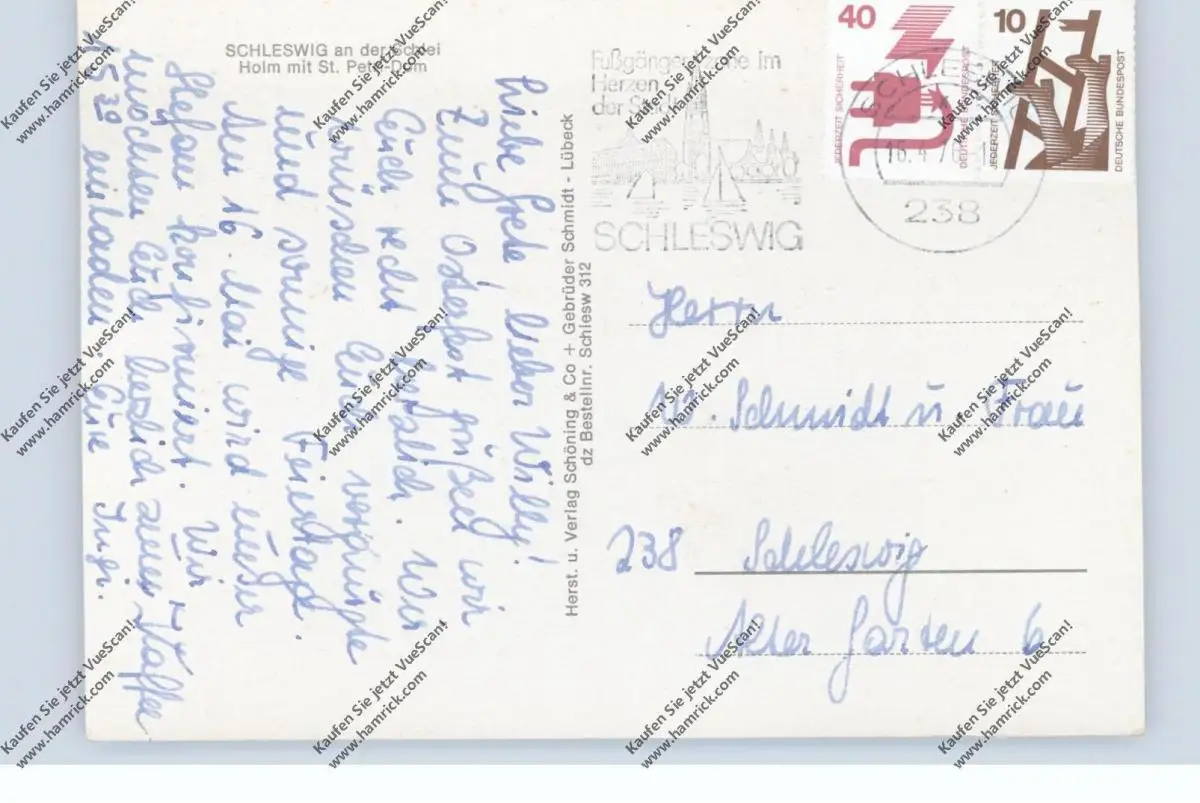 SCHLESWIG an der Schlei
Holm mit St. Petri-Dom
Liebe Grete lieber Willy!
Zum Osterfest grüßen wir
Euch recht herzlich. Wir
wünschen Euch vergnügte
und sonnige Feiertage.
Am 16. Mai wird unser
Stefan konfirmiert. Wir
möchten Euch herzlich zum Kaffee
15 30 einladen. Eure Ingi.
Herst. u. Verlag Schöning & Co + Gebrüder Schmidt - Lübeck
dz Bestellnr. Schlesw 312
Fußgängerzone im
Herzen
der Stadt
SCHLESWIG
SCHLESWIG
238
40
JEDERZEIT SICHERHEIT
DEUTSCHE BUNDESPOST
10
JEDERZEIT SICHERHEIT
DEUTSCHE BUNDESPOST
Herrn
W. Schmidt u. Frau
238 Schleswig
Alter Garten 6
Kaufen Sie jetzt VueScan!
www.hamrick.com